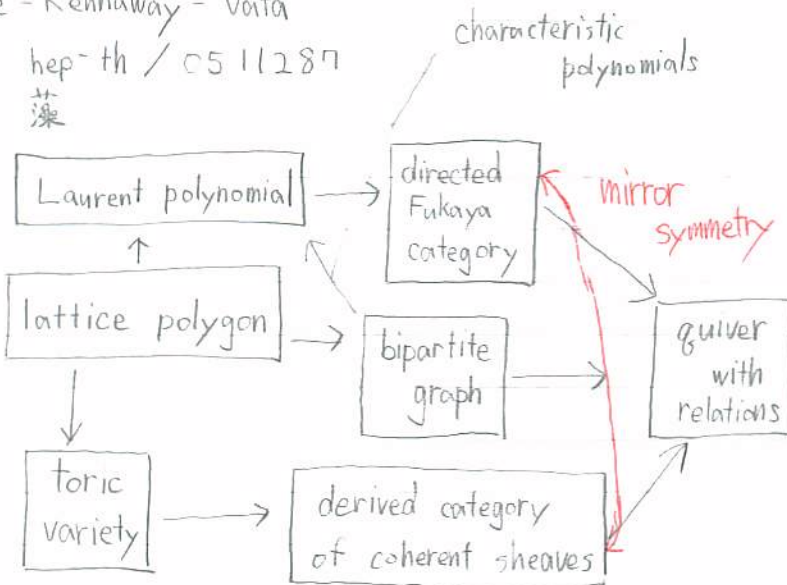 - Kennaway - Vafa
hep-th / 0511287
藻
characteristic
polynomials
Laurent polynomial
directed
Fukaya
category
mirror
symmetry
lattice polygon
bipartite
graph
quiver
with
relations
toric
variety
derived category
of coherent sheaves